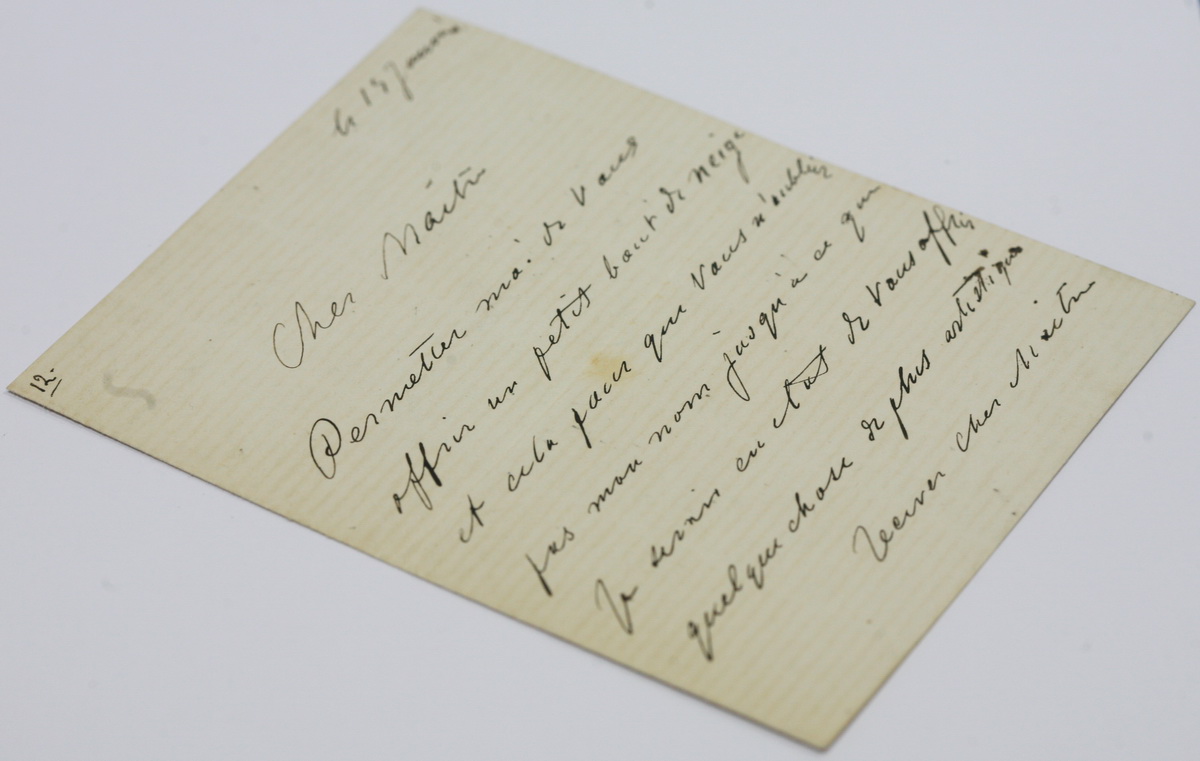 le 13 janvier
Cher Maître
Permetter moi de vous
offrir un petit bout de neige
et cela pour que vous n'oubliez
pas mon nom jusqu'à ce que
Je serais en état de vous offrir
quelque chose de plus artistique
Recever cher Maître
12.